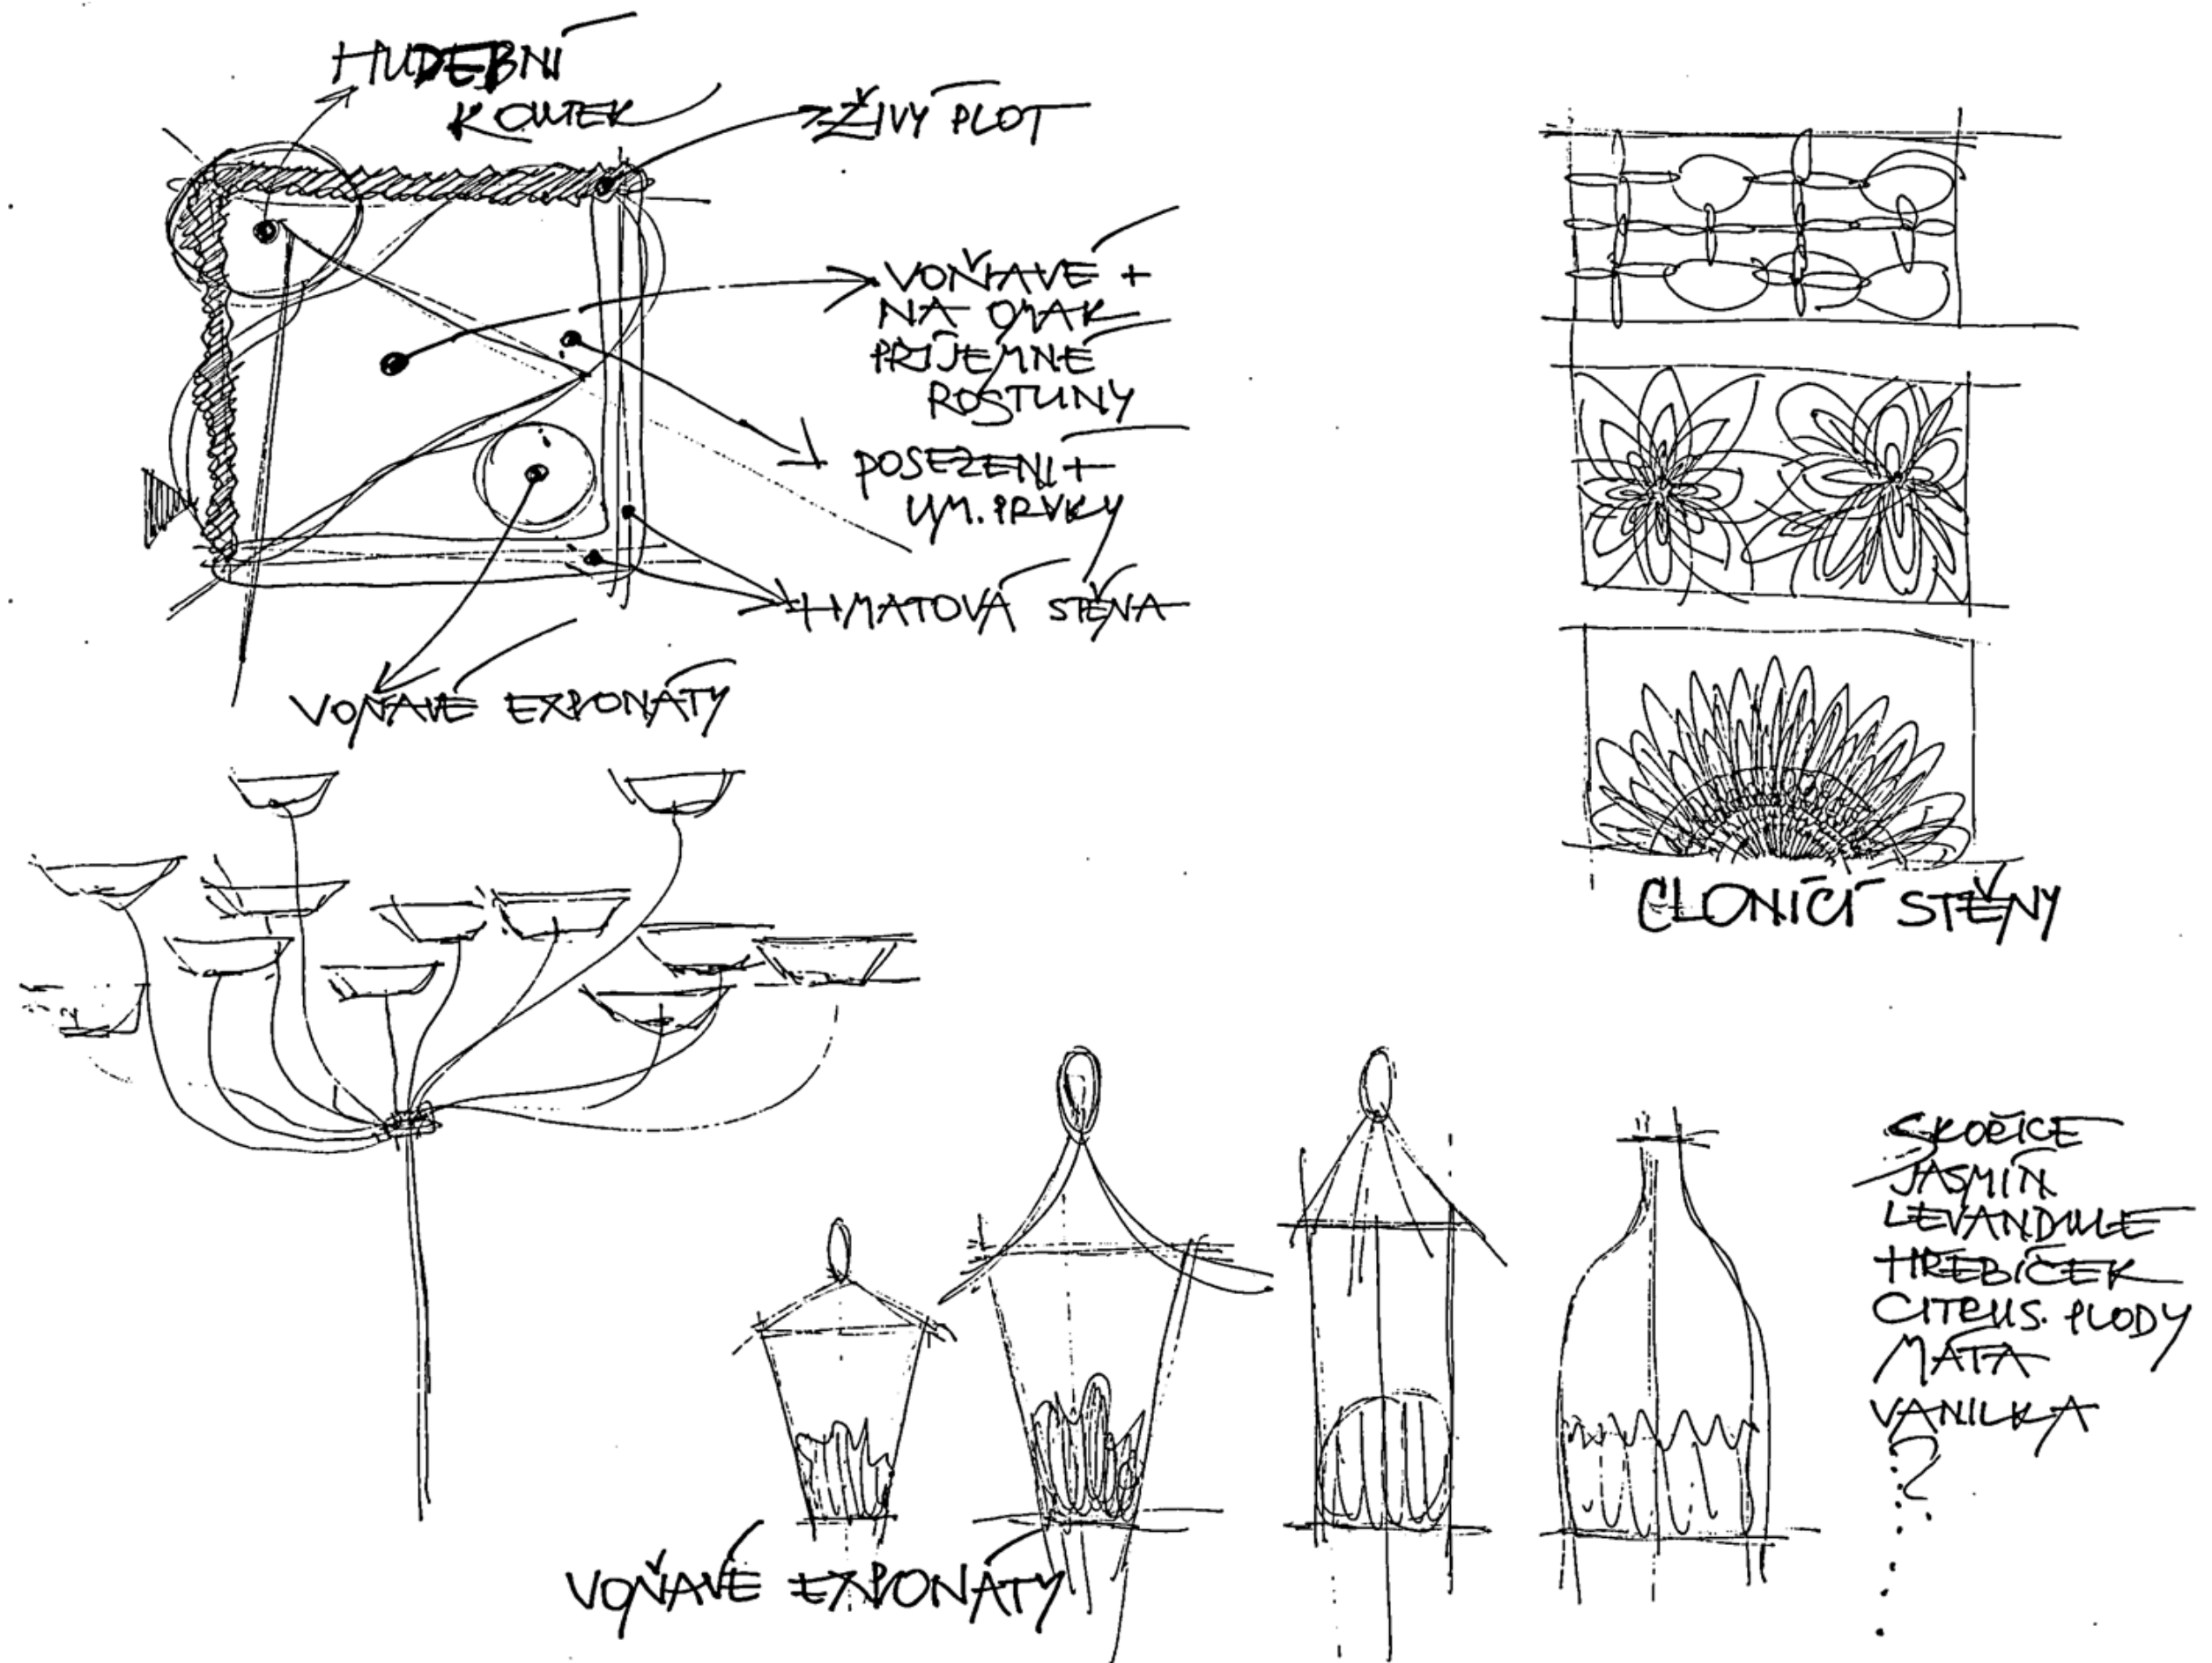 HUDEBNÍ
KOUTEK
ŽIVÝ PLOT
VOŇAVÉ +
NA OMAK
PŘÍJEMNÉ
ROSTLINY
POSEZENÍ +
UM. PRVKY
HMATOVÁ STĚNA
VOŇAVÉ EXPONÁTY
CLONÍCÍ STĚNY
SKOŘICE
JASMÍN
LEVANDULE
HŘEBÍČEK
CITRUS. PLODY
MÁTA
VANILKA
?
VOŇAVÉ EXPONÁTY